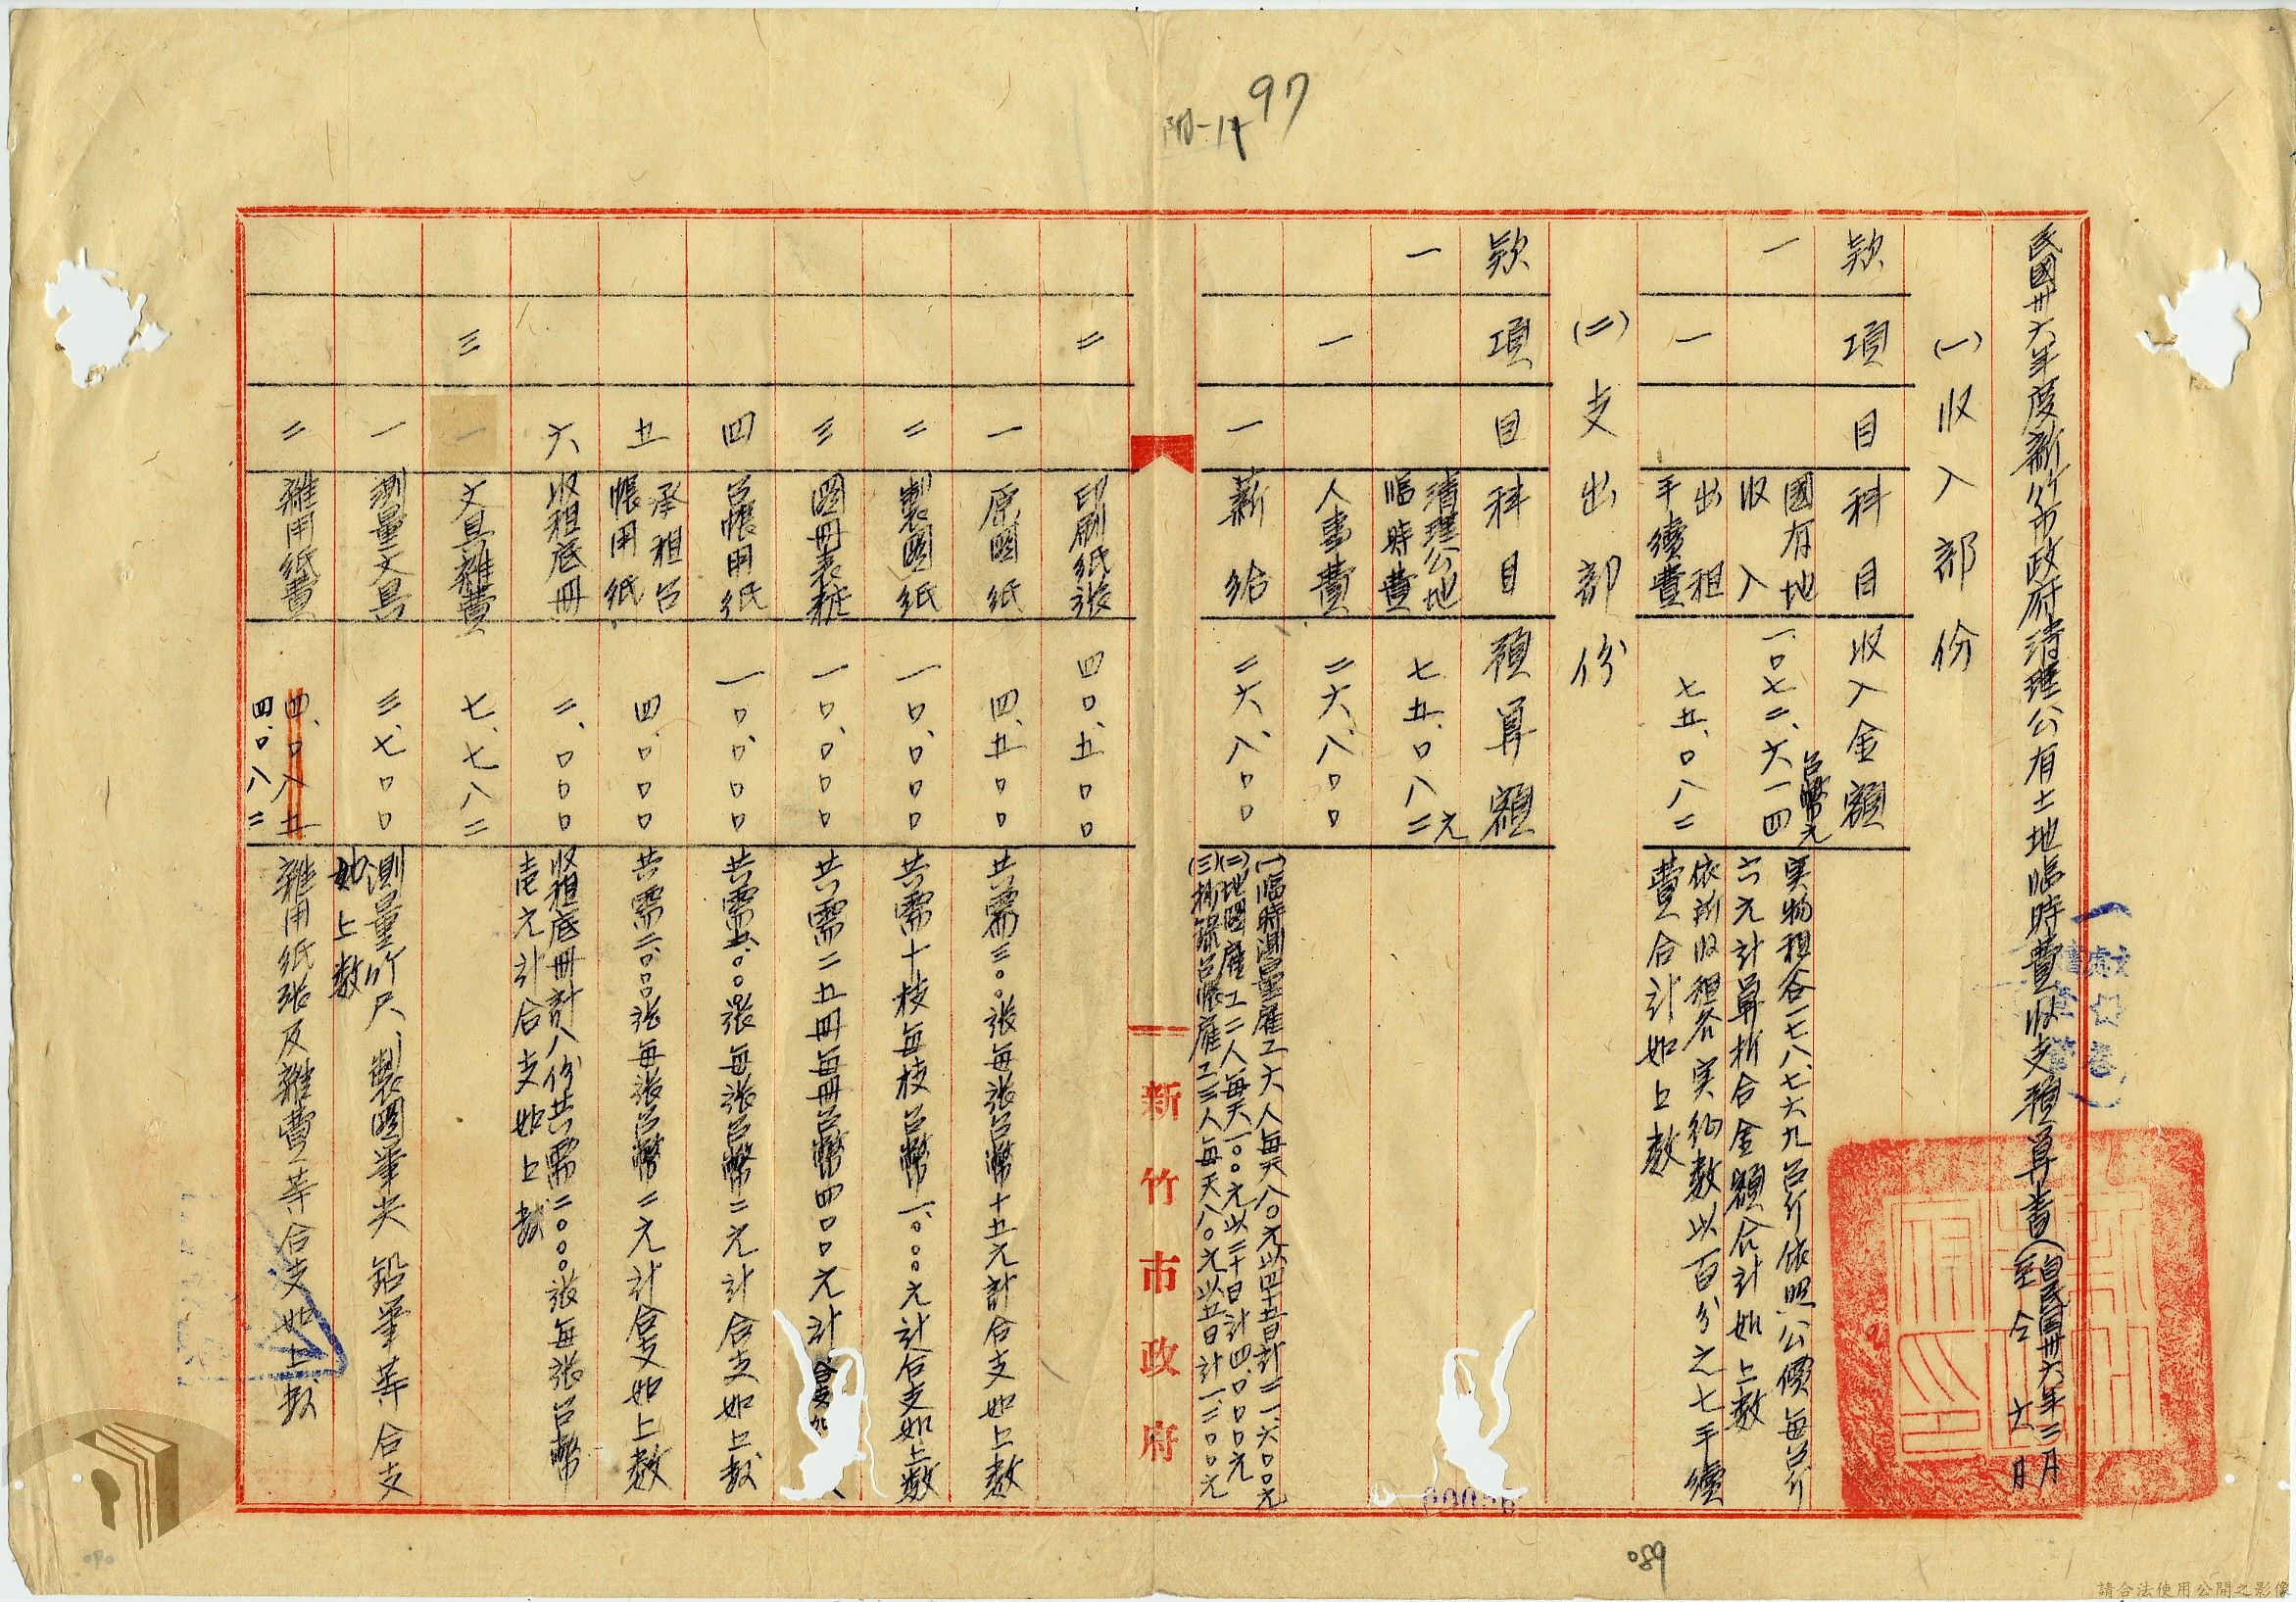 97
民國卅六年度新竹市政府清理公有土地臨時費收支預算書(自民國卅六年三月
至仝六月)
(一)收入部份
款 項 目 科目 收入金額
一 國有地收入 一、〇七二、六一四 台幣元 実物租谷一七八、七六九台斤依照公價每台斤
六元計算折合金額合計如上數
一 出租手續費 七五、〇八二 依所收租谷実物數以百分之七手續
費合計如上數
(二)支出部份
款 項 目 科目 預算額
一 清理公地臨時費 七五、〇八二元
一 人事費 二六、八〇〇
一 薪給 二六、八〇〇 (一)臨時測量雇工六人每天八〇元以四十五日計二一、六〇〇元
(二)地圖雇工二人每天一〇〇元以二十日計四、〇〇〇元
(三)抄錄台帳雇工三人每天八〇元以五日計一、二〇〇元
新竹市政府
二 印刷紙張 四〇、五〇〇
一 原圖紙 四、五〇〇 共需三〇〇張每張台幣十五元計合支如上數
二 製圖紙 一〇、〇〇〇 共需十枝每枝台幣一、〇〇〇元計合支如上數
三 圖冊表粧 一〇、〇〇〇 共需二五冊每冊台幣四〇〇元計合支如
四 台帳用紙 一〇、〇〇〇 共需五、〇〇〇張每張台幣二元計合支如上數
五 承租台帳用紙 四、〇〇〇 共需二、〇〇〇張每張台幣二元計合支如上數
六 收租底冊 二、〇〇〇 收租底冊計八份共需二〇〇〇張每張台幣
壱元計合支如上數
三 文具雜費 七、七八二
一 測量文具 三、七〇〇 測量竹尺、製圖筆尖鉛筆等合支
如上數
二 雜用紙費 四、〇八五 四、〇八二 雜用紙張及雜費等合支如上數
089
請合法使用公開之影像